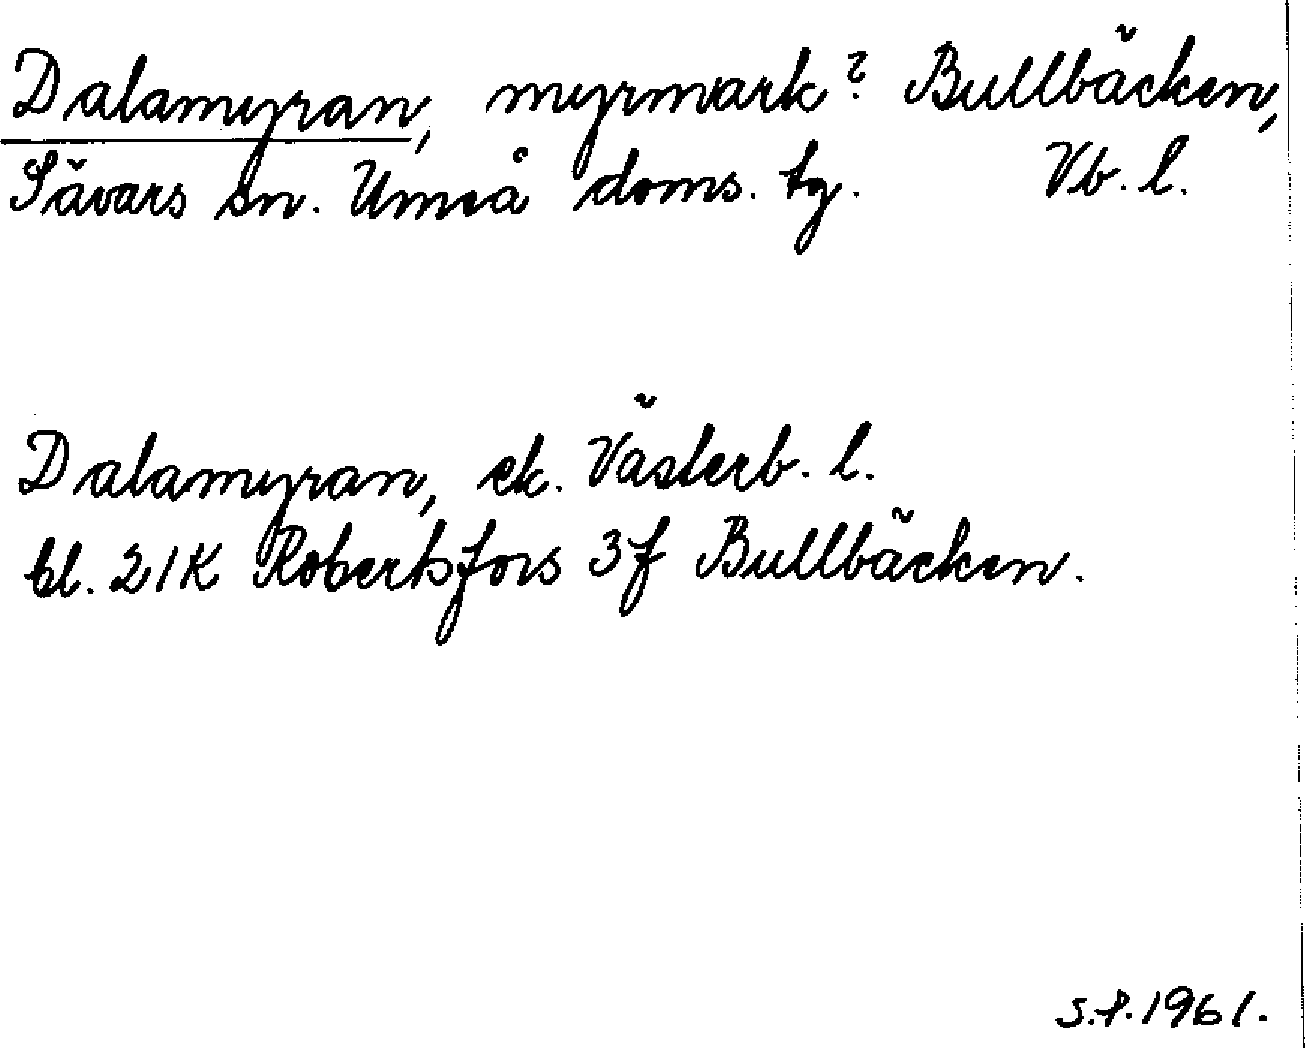 Dalamyran, myrmark? Bullbäcken,
Sävars sn. Umeå doms. tg. Vb. l.
Dalamyran, ek. Västerb. l.
bl. 21K Robertsfors 3f Bullbäcken.
S.P. 1961.